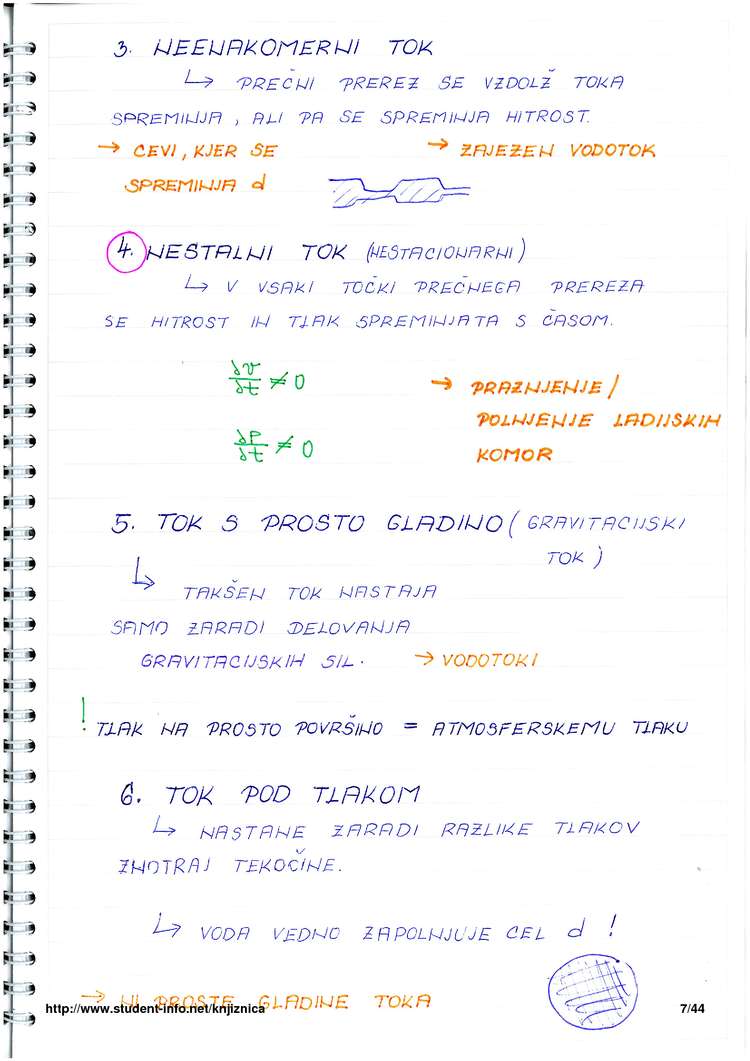 3. NEENAKOMERNI TOK
↳ PREČNI PREREZ SE VZDOLŽ TOKA
SPREMINJA, ALI PA SE SPREMINJA HITROST.
→ CEVI, KJER SE
SPREMINJA d
→ ZAJEZEN VODOTOK
4. NESTALNI TOK (NESTACIONARNI)
↳ V VSAKI TOČKI PREČNEGA PREREZA
SE HITROST IN TLAK SPREMINJATA S ČASOM.
∂v/∂t ≠ 0
∂P/∂t ≠ 0
→ PRAZNJENJE/
POLNJENJE LADIJSKIH
KOMOR
5. TOK S PROSTO GLADINO (GRAVITACIJSKI
TOK)
↳ TAKŠEN TOK NASTAJA
SAMO ZARADI DELOVANJA
GRAVITACIJSKIH SIL. → VODOTOKI
! TLAK NA PROSTO POVRŠINO = ATMOSFERSKEMU TLAKU
6. TOK POD TLAKOM
↳ NASTANE ZARADI RAZLIKE TLAKOV
ZNOTRAJ TEKOČINE.
↳ VODA VEDNO ZAPOLNJUJE CEL d !
→ NI PROSTE GLADINE TOKA
http://www.student-info.net/knjiznica 7/44